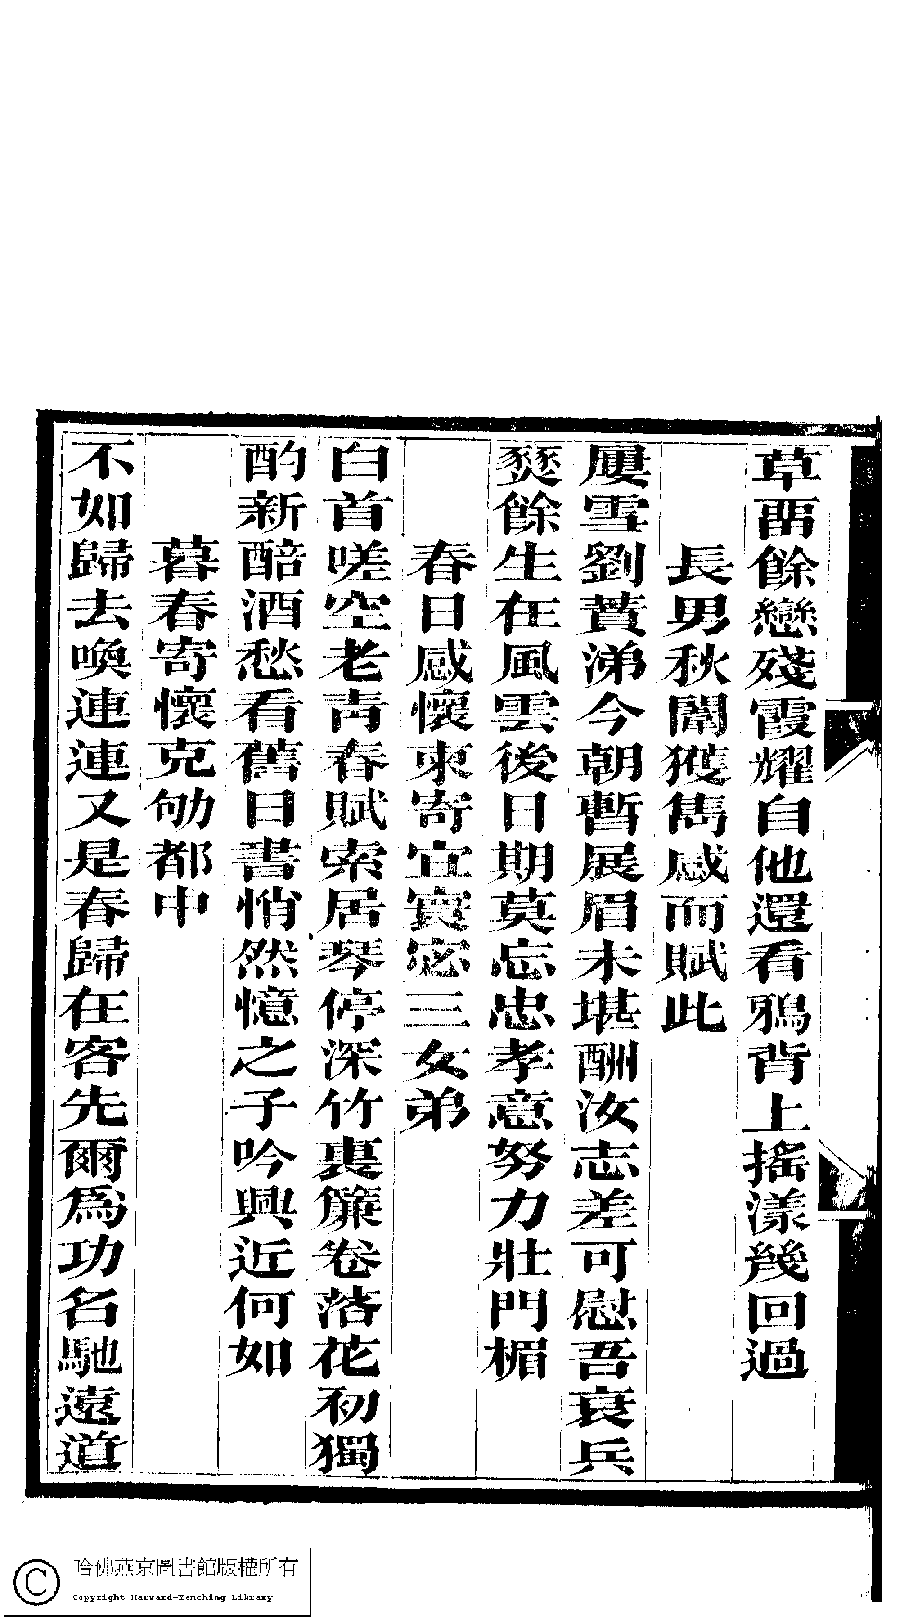 草畱餘戀殘霞耀自他還看鴉背上搖漾幾回過
長男秋闈獲雋感而賦此
屢雪劉蕡涕今朝暫展眉未堪酬汝志差可慰吾衰兵
燹餘生在風雲後日期莫忘忠孝意努力壯門楣
春日感懷柬寄宜寰宓三女弟
白首嗟空老青春賦索居琴停深竹裏簾卷落花初獨
酌新醅酒愁看舊日書悄然憶之子吟興近何如
暮春寄懷克劬都中
不如歸去喚連連又是春歸在客先爾為功名馳遠道
哈佛燕京圖書館版權所有
Copyright Harvard-Yenching Library